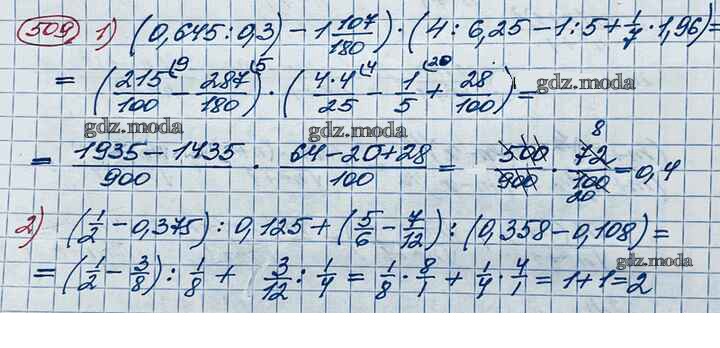 509 1) (0,645:0,3) - 1 107/180) · (4 : 6,25 - 1:5 + 1/7 · 1,96) =
= (215/100 (9 - 287/180 (5) · (4·4/25 (4 - 1/5 (20 + 28/100) = gdz.moda
gdz.moda gdz.moda
= 1935 - 1435/900 · 64 - 20 + 28/100 = 500/900 · 72/100 8 20 = 0,4
2) (1/2 - 0,375) : 0,125 + (5/6 - 7/12) : (0,358 - 0,108) =
gdz.moda
= (1/2 - 3/8) : 1/8 + 3/12 : 1/4 = 1/8 · 8/1 + 1/4 · 4/1 = 1 + 1 = 2